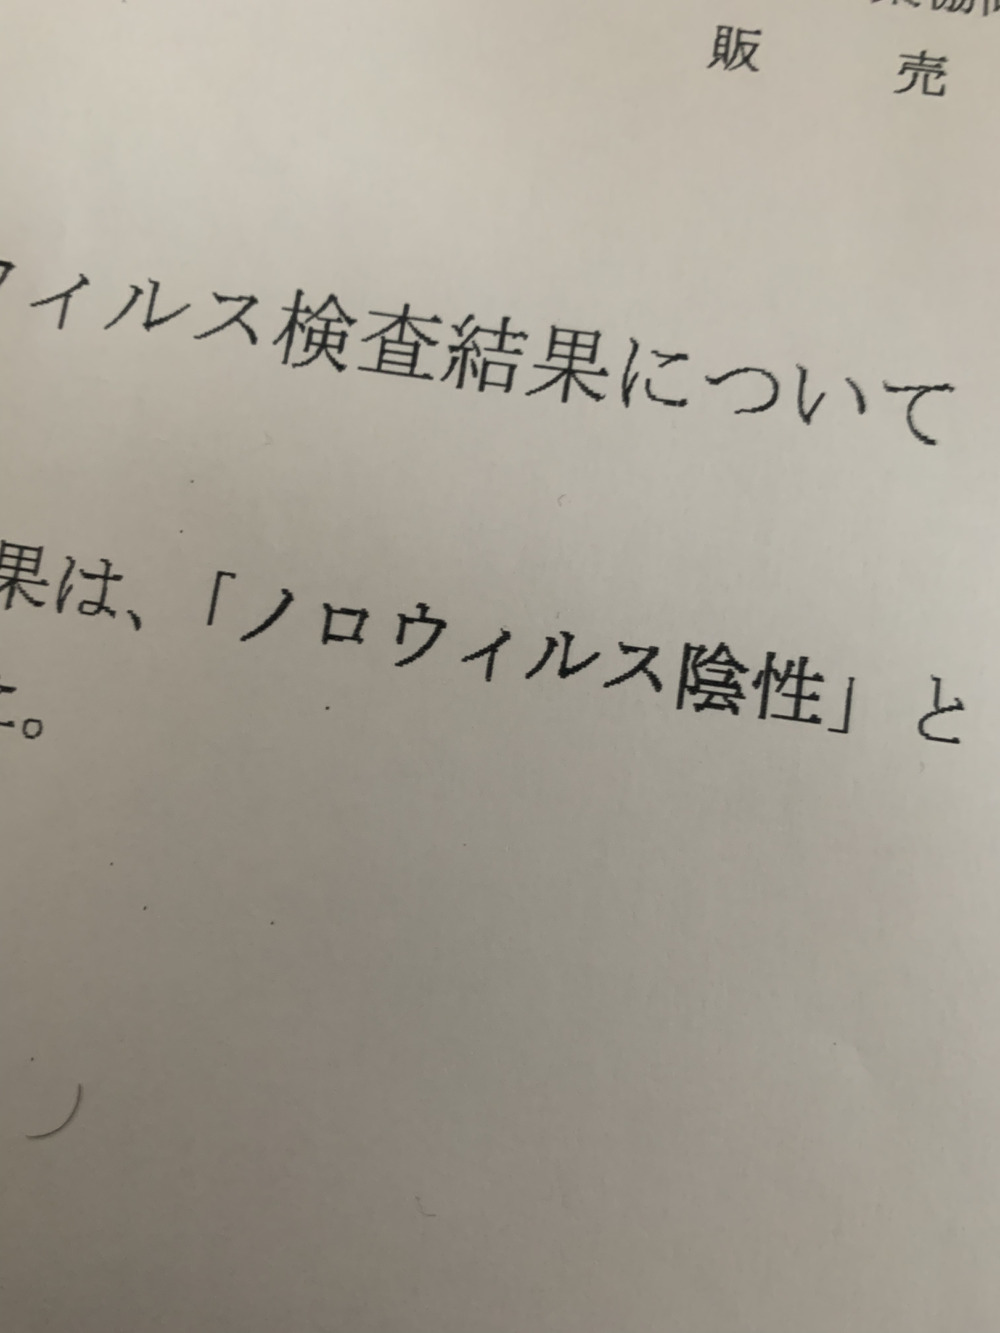 販 売
ウィルス検査結果について
果は、「ノロウィルス陰性」と
た。